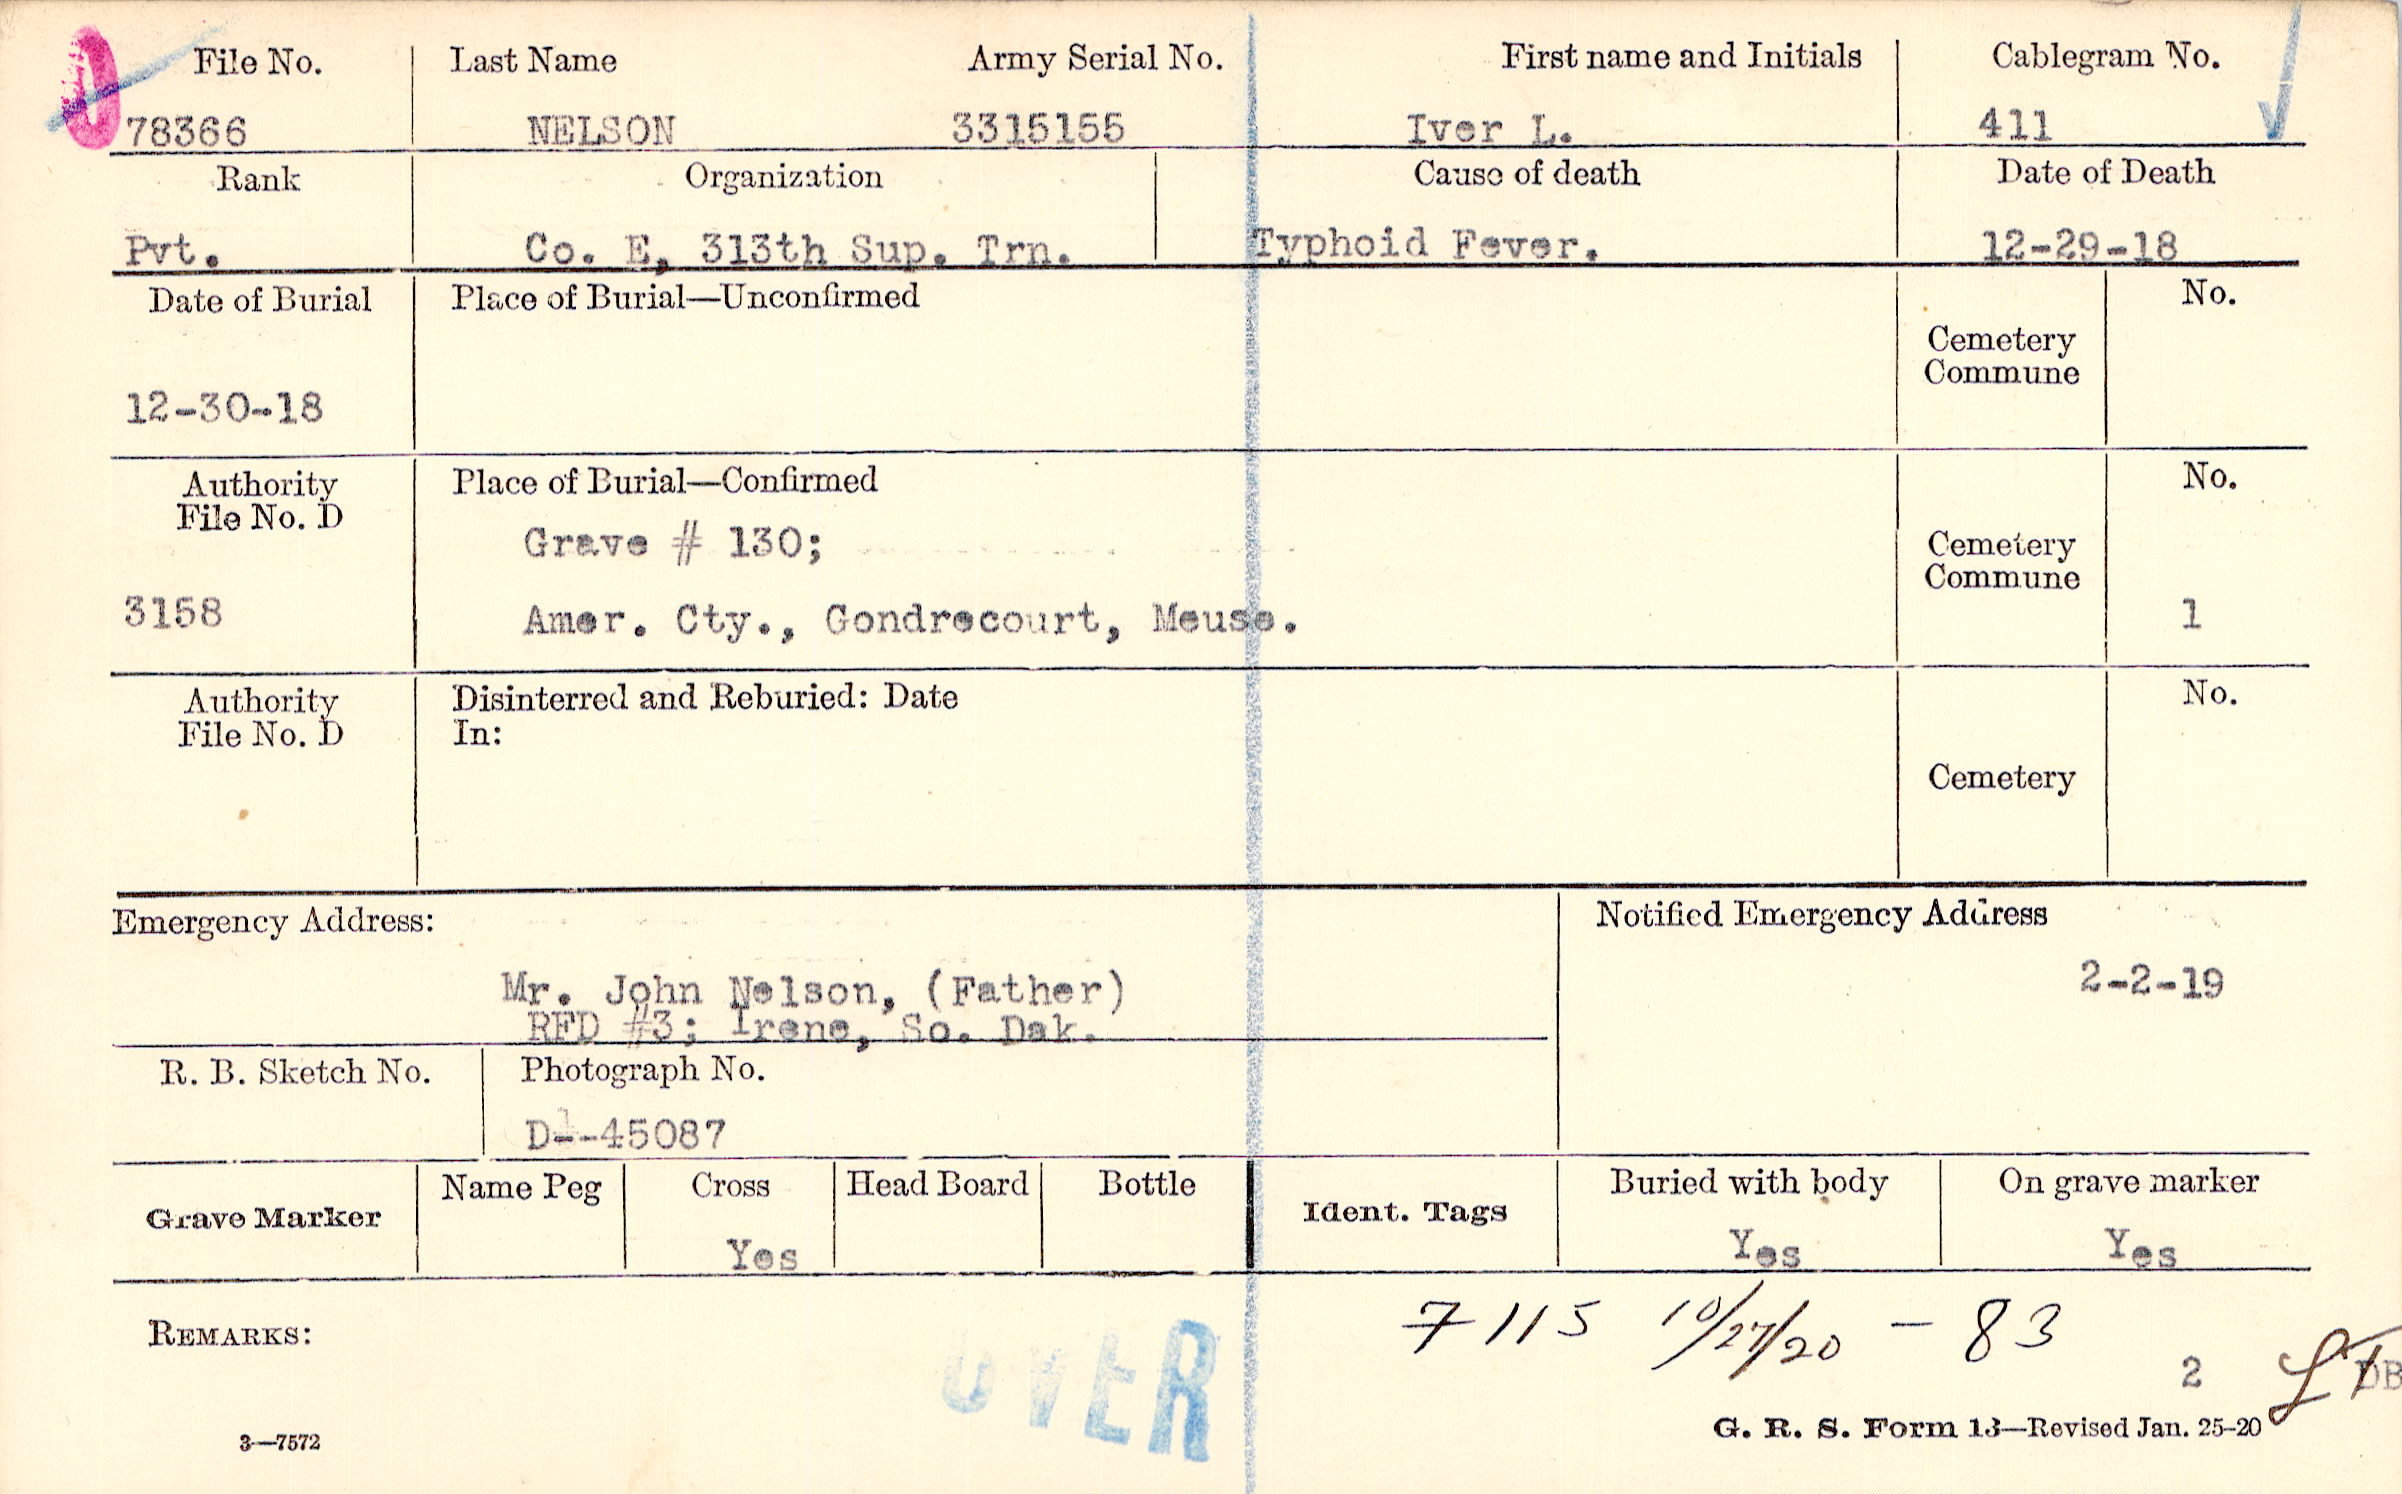 File No. Last Name Army Serial No. First name and Initials Cablegram No.
78366 NELSON 3315155 Iver L. 411
Rank Organization Cause of death Date of Death
Pvt. Co. E, 313th Sup. Trn. Typhoid Fever. 12-29-18
Date of Burial Place of Burial—Unconfirmed No.
Cemetery
Commune
12-30-18
Authority Place of Burial—Confirmed No.
File No. D
Grave # 130;
Cemetery
Commune
3158 Amer. Cty., Gondrecourt, Meuse. 1
Authority Disinterred and Reburied: Date No.
File No. D In:
Cemetery
Emergency Address: Notified Emergency Address
Mr. John Nelson, (Father) 2-2-19
RFD #3; Irene, So. Dak.
R. B. Sketch No. Photograph No.
D--45087
Grave Marker Name Peg Cross Head Board Bottle Ident. Tags Buried with body On grave marker
Yes Yes Yes
REMARKS: 7115 10/27/20 - 83
OVER
2 DB
3—7572 G. R. S. Form 13—Revised Jan. 25-20